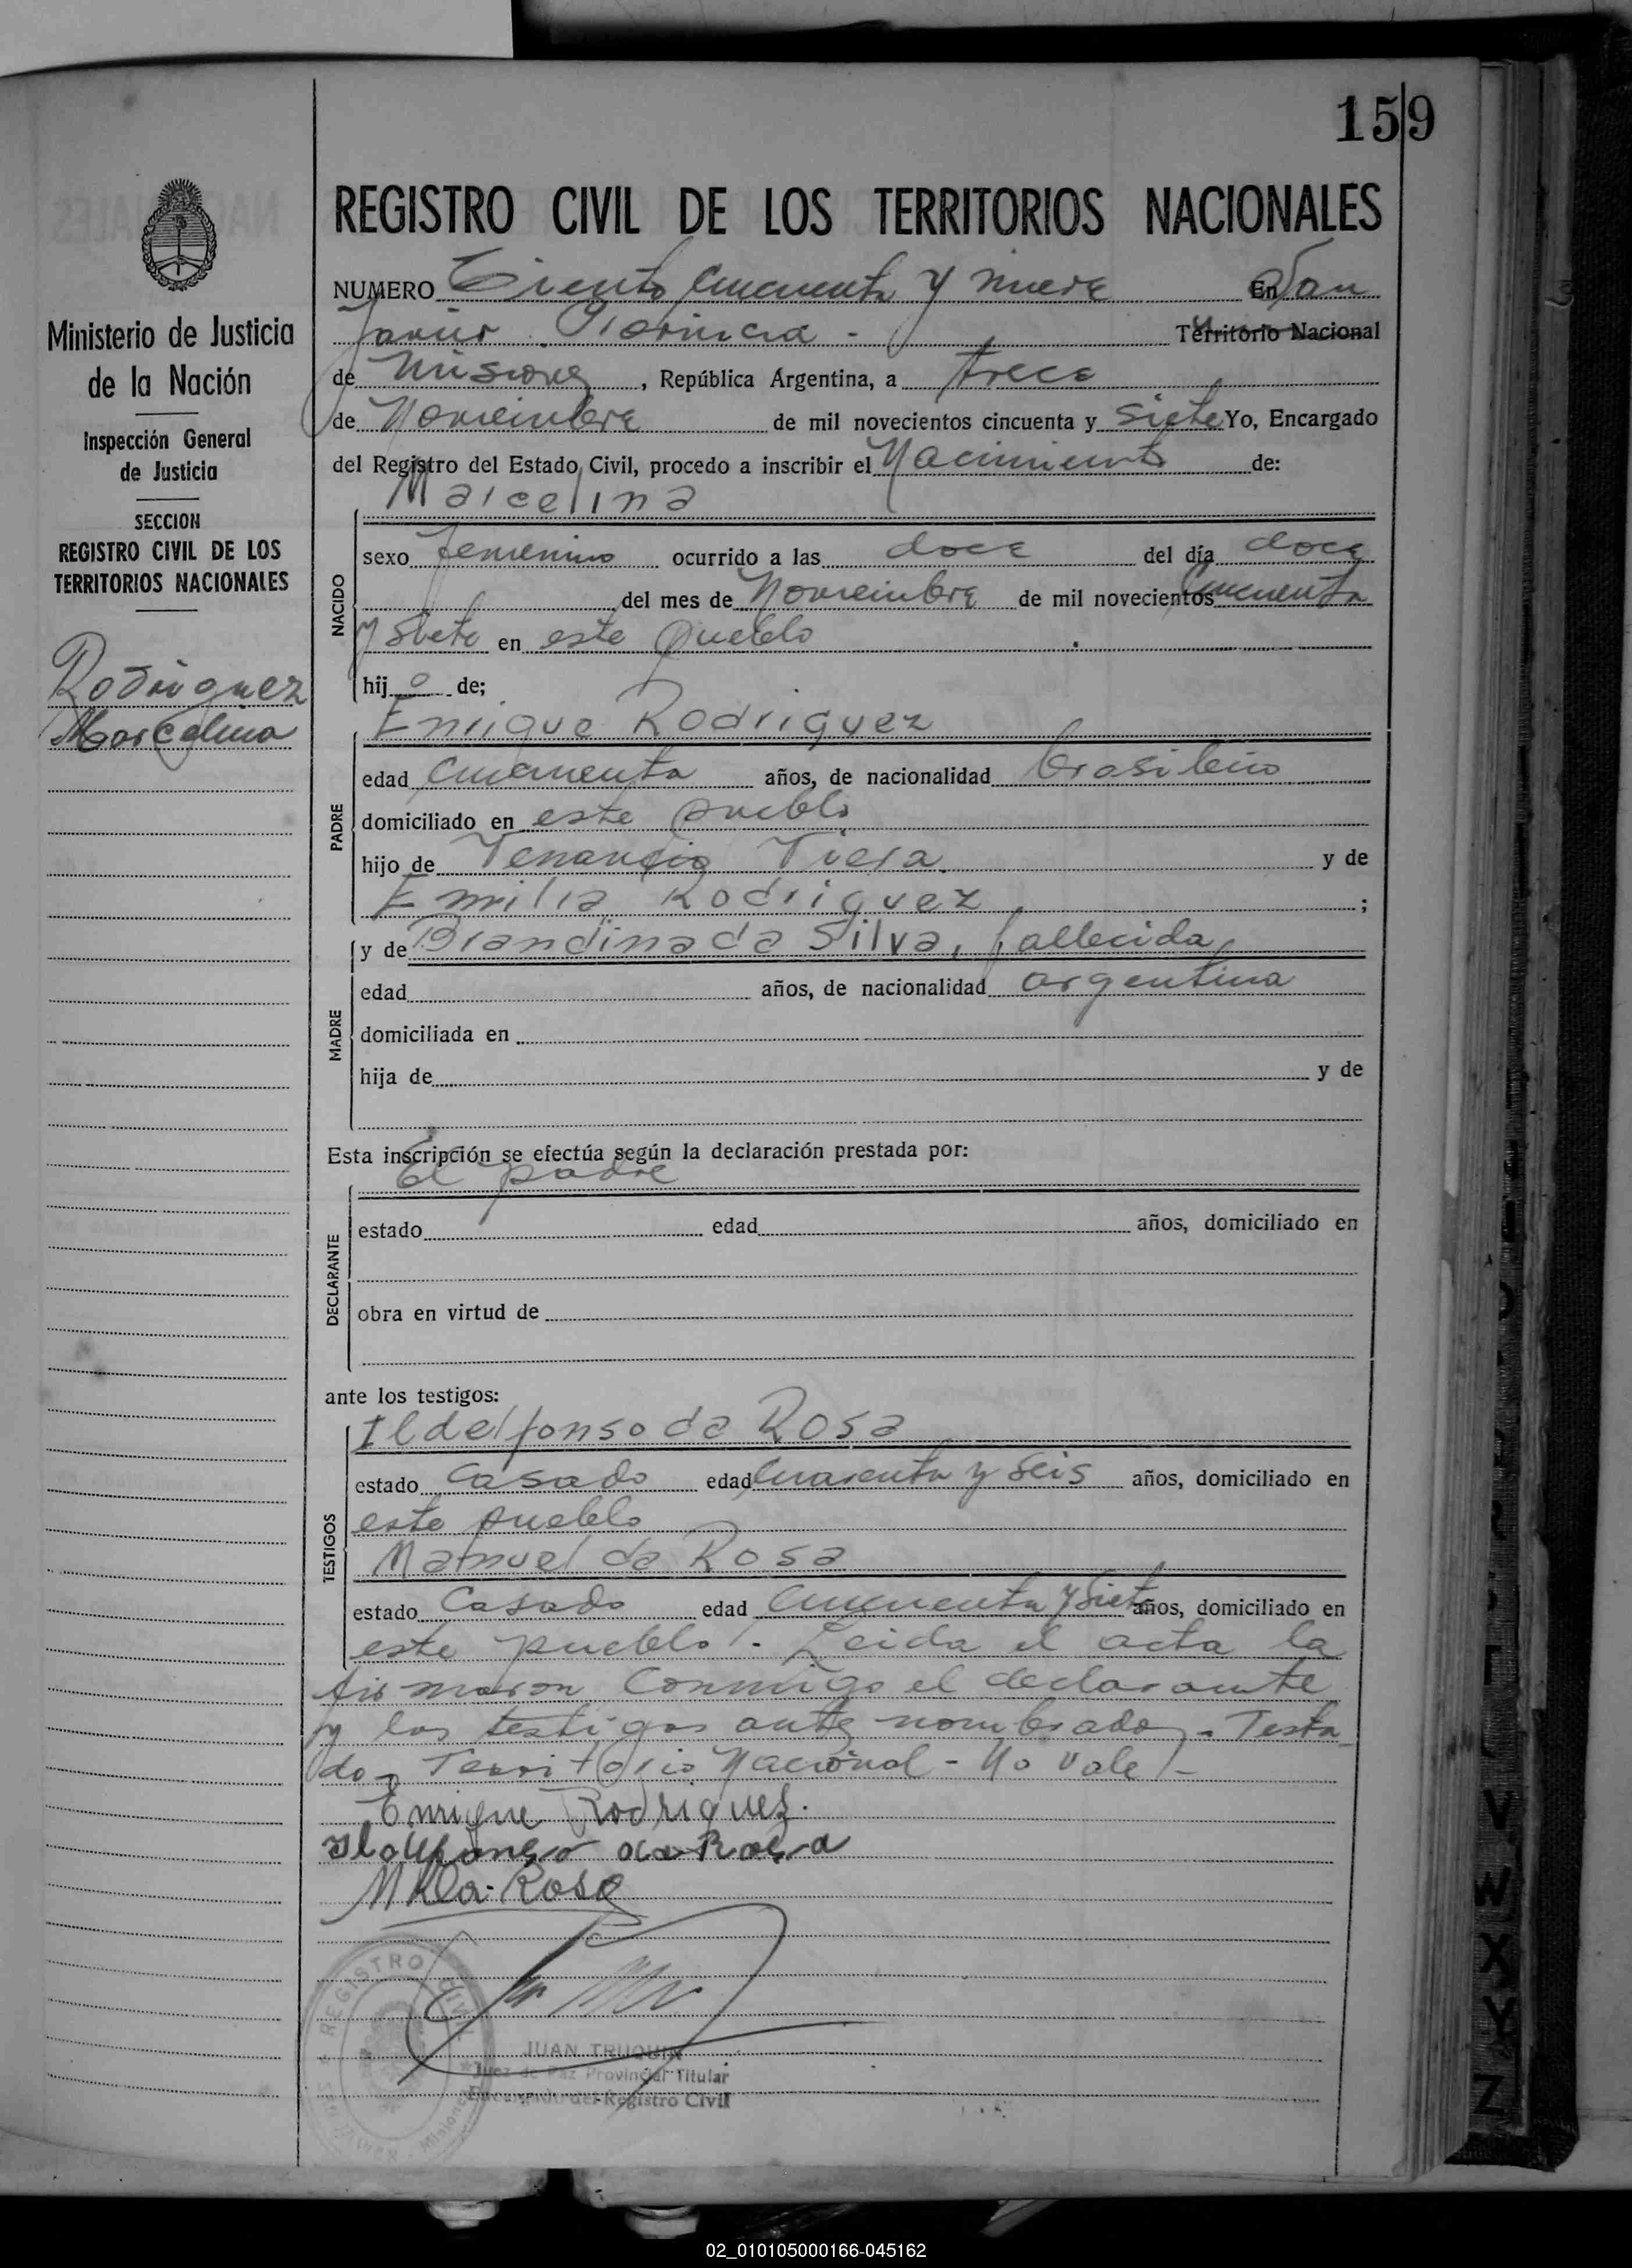 159
REGISTRO CIVIL DE LOS TERRITORIOS NACIONALES
NUMERO Ciento cincuenta y nueve En San
Javier Provincia - Territorio Nacional
de Misiones, República Argentina, a trece
de Noviembre de mil novecientos cincuenta y siete Yo, Encargado
del Registro del Estado Civil, procedo a inscribir el Nacimiento de:
Marcelina
NACIDO
sexo femenino ocurrido a las doce del día doce
del mes de Noviembre de mil novecientos cincuenta
y siete en este pueblo
hij o de;
Enrique Rodriguez
PADRE
edad cincuenta años, de nacionalidad brasileiro
domiciliado en este pueblo
hijo de Venancio Viera y de
Emilia Rodriguez ;
y de Brandina da Silva, fallecida
MADRE
edad años, de nacionalidad argentina
domiciliada en
hija de y de
Esta inscripción se efectúa según la declaración prestada por:
El padre
DECLARANTE
estado edad años, domiciliado en
obra en virtud de
ante los testigos:
Ildelfonso da Rosa
TESTIGOS
estado casado edad cuarenta y seis años, domiciliado en
este pueblo
Manuel da Rosa
estado casado edad cincuenta y siete años, domiciliado en
este pueblo. Leida el acta la
firmaron conmigo el declarante
y los testigos ante nombrados. Testa
do - Territorio Nacional - No vale -
Enrique Rodriguez.
Ildelfonso da Rosa
JUAN TRUQUIN
Juez de Paz Provincial Titular
Encargado del Registro Civil
REGISTRO CIVIL
Ministerio de Justicia
de la Nación
Inspección General
de Justicia
SECCION
REGISTRO CIVIL DE LOS
TERRITORIOS NACIONALES
Rodriguez
Marcelina
V
W
X
Y
Z
02_010105000166-045162